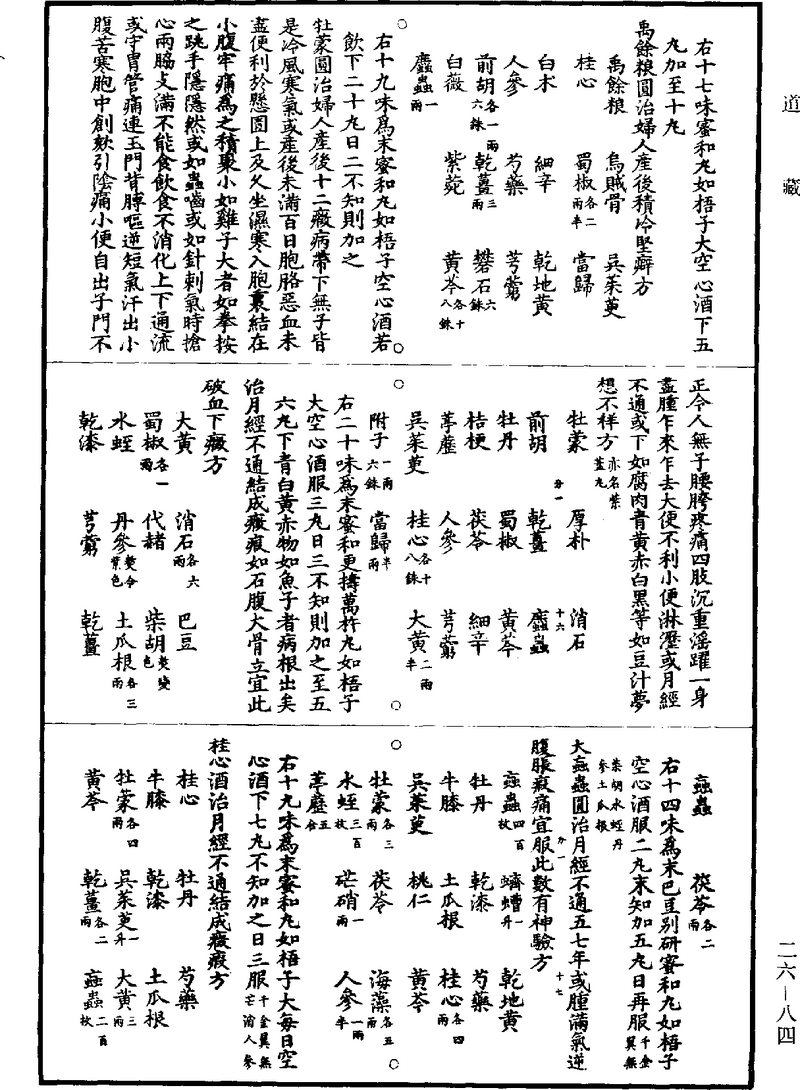 道藏
右十七味爲末蜜和丸如梧子大空心酒下五
丸加至十丸
禹餘粮圓治婦人產後積冷堅癖方
禹餘粮　烏賊骨　吳茱萸
桂心　蜀椒各二兩半　當歸
白术　細辛　乾地黃
人參　芍藥　芎藭
前胡各一兩六銖　乾薑三兩　礬石六銖
白薇　紫菀　黃芩各十八銖
䗪蟲一兩
右十九味爲末蜜和丸如梧子空心酒若
飲下二十丸日二不知則加之
牡蒙圓治婦人產後十二癥病帶下無子皆
是冷風寒氣或產後未滿百日胞胳惡血未
盡便利於懸圊上及久坐濕寒入胞裏結在
小腹牢痛爲之積聚小如雞子大者如拳按
之跳手隱隱然或如蟲嚙或如針刺氣時搶
心兩脇支滿不能食飲食不消化上下通流
或守胃管痛連玉門背膊嘔逆短氣汗出少
腹苦寒胞中創欬引陰痛小便自出子門不
正令人無子腰胯疼痛四肢沉重淫躍一身
盡腫乍來乍去大便不利小便淋瀝或月經
不通或下如腐肉青黃赤白黑等如豆汁夢
想不祥方亦名紫蓋丸
牡蒙　厚朴　消石
前胡　乾薑　䗪蟲
牡丹　蜀椒　黃芩
桔梗　茯苓　細辛
葶藶　人參　芎藭
吳茱萸　桂心各十八銖　大黃二兩半
附子一兩六銖　當歸半兩
右二十味爲末蜜和更擣萬杵丸如梧子
大空心酒服三丸日三不知則加之至五
六丸下青白黃赤物如魚子者病根出矣
治月經不通結成癥瘕如石腹大骨立宜此
破血下癥方
大黃　消石各六兩　巴豆
蜀椒各一兩　代赭　柴胡熬變色
水蛭　丹參熬令紫色　土瓜根各三兩
乾漆　芎藭　乾薑
䖟蟲　茯苓各二兩
右十四味爲末巴豆別研蜜和丸如梧子
空心酒服二丸未知加五丸日再服千金翼無柴胡水蛭丹參土瓜根
大䖟蟲圓治月經不通五七年或腫滿氣逆
腹脹瘕痛宜服此數有神驗方
䖟蟲四百枚　蠐螬一升　乾地黃
牡丹　乾漆　芍藥
牛膝　土瓜根　桂心各四兩
吳茱萸　桃仁　黃芩
牡蒙各三兩　茯苓　海藻各五兩
水蛭三百枚　芒硝一兩　人參一兩半
葶藶五合
右十九味爲末蜜和丸如梧子大每日空
心酒下七丸不知加之日三服千金翼無芒消人參
桂心酒治月經不通結成癥瘕方
桂心　牡丹　芍藥
牛膝　乾漆　土瓜根
牡蒙各四兩　吳茱萸一升　大黃三兩
黃芩　乾薑各二兩　䖟蟲二百枚
二六—八四